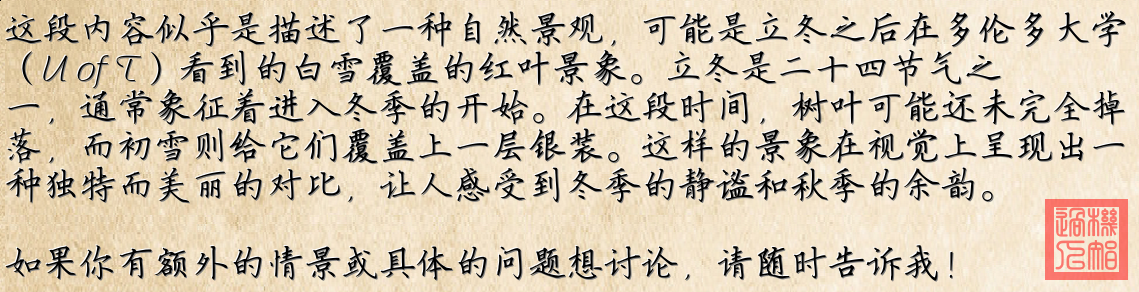 这段内容似乎是描述了一种自然景观，可能是立冬之后在多伦多大学
（U of T）看到的白雪覆盖的红叶景象。立冬是二十四节气之
一，通常象征着进入冬季的开始。在这段时间，树叶可能还未完全掉
落，而初雪则给它们覆盖上一层银装。这样的景象在视觉上呈现出一
种独特而美丽的对比，让人感受到冬季的静谧和秋季的余韵。
如果你有额外的情景或具体的问题想讨论，请随时告诉我！